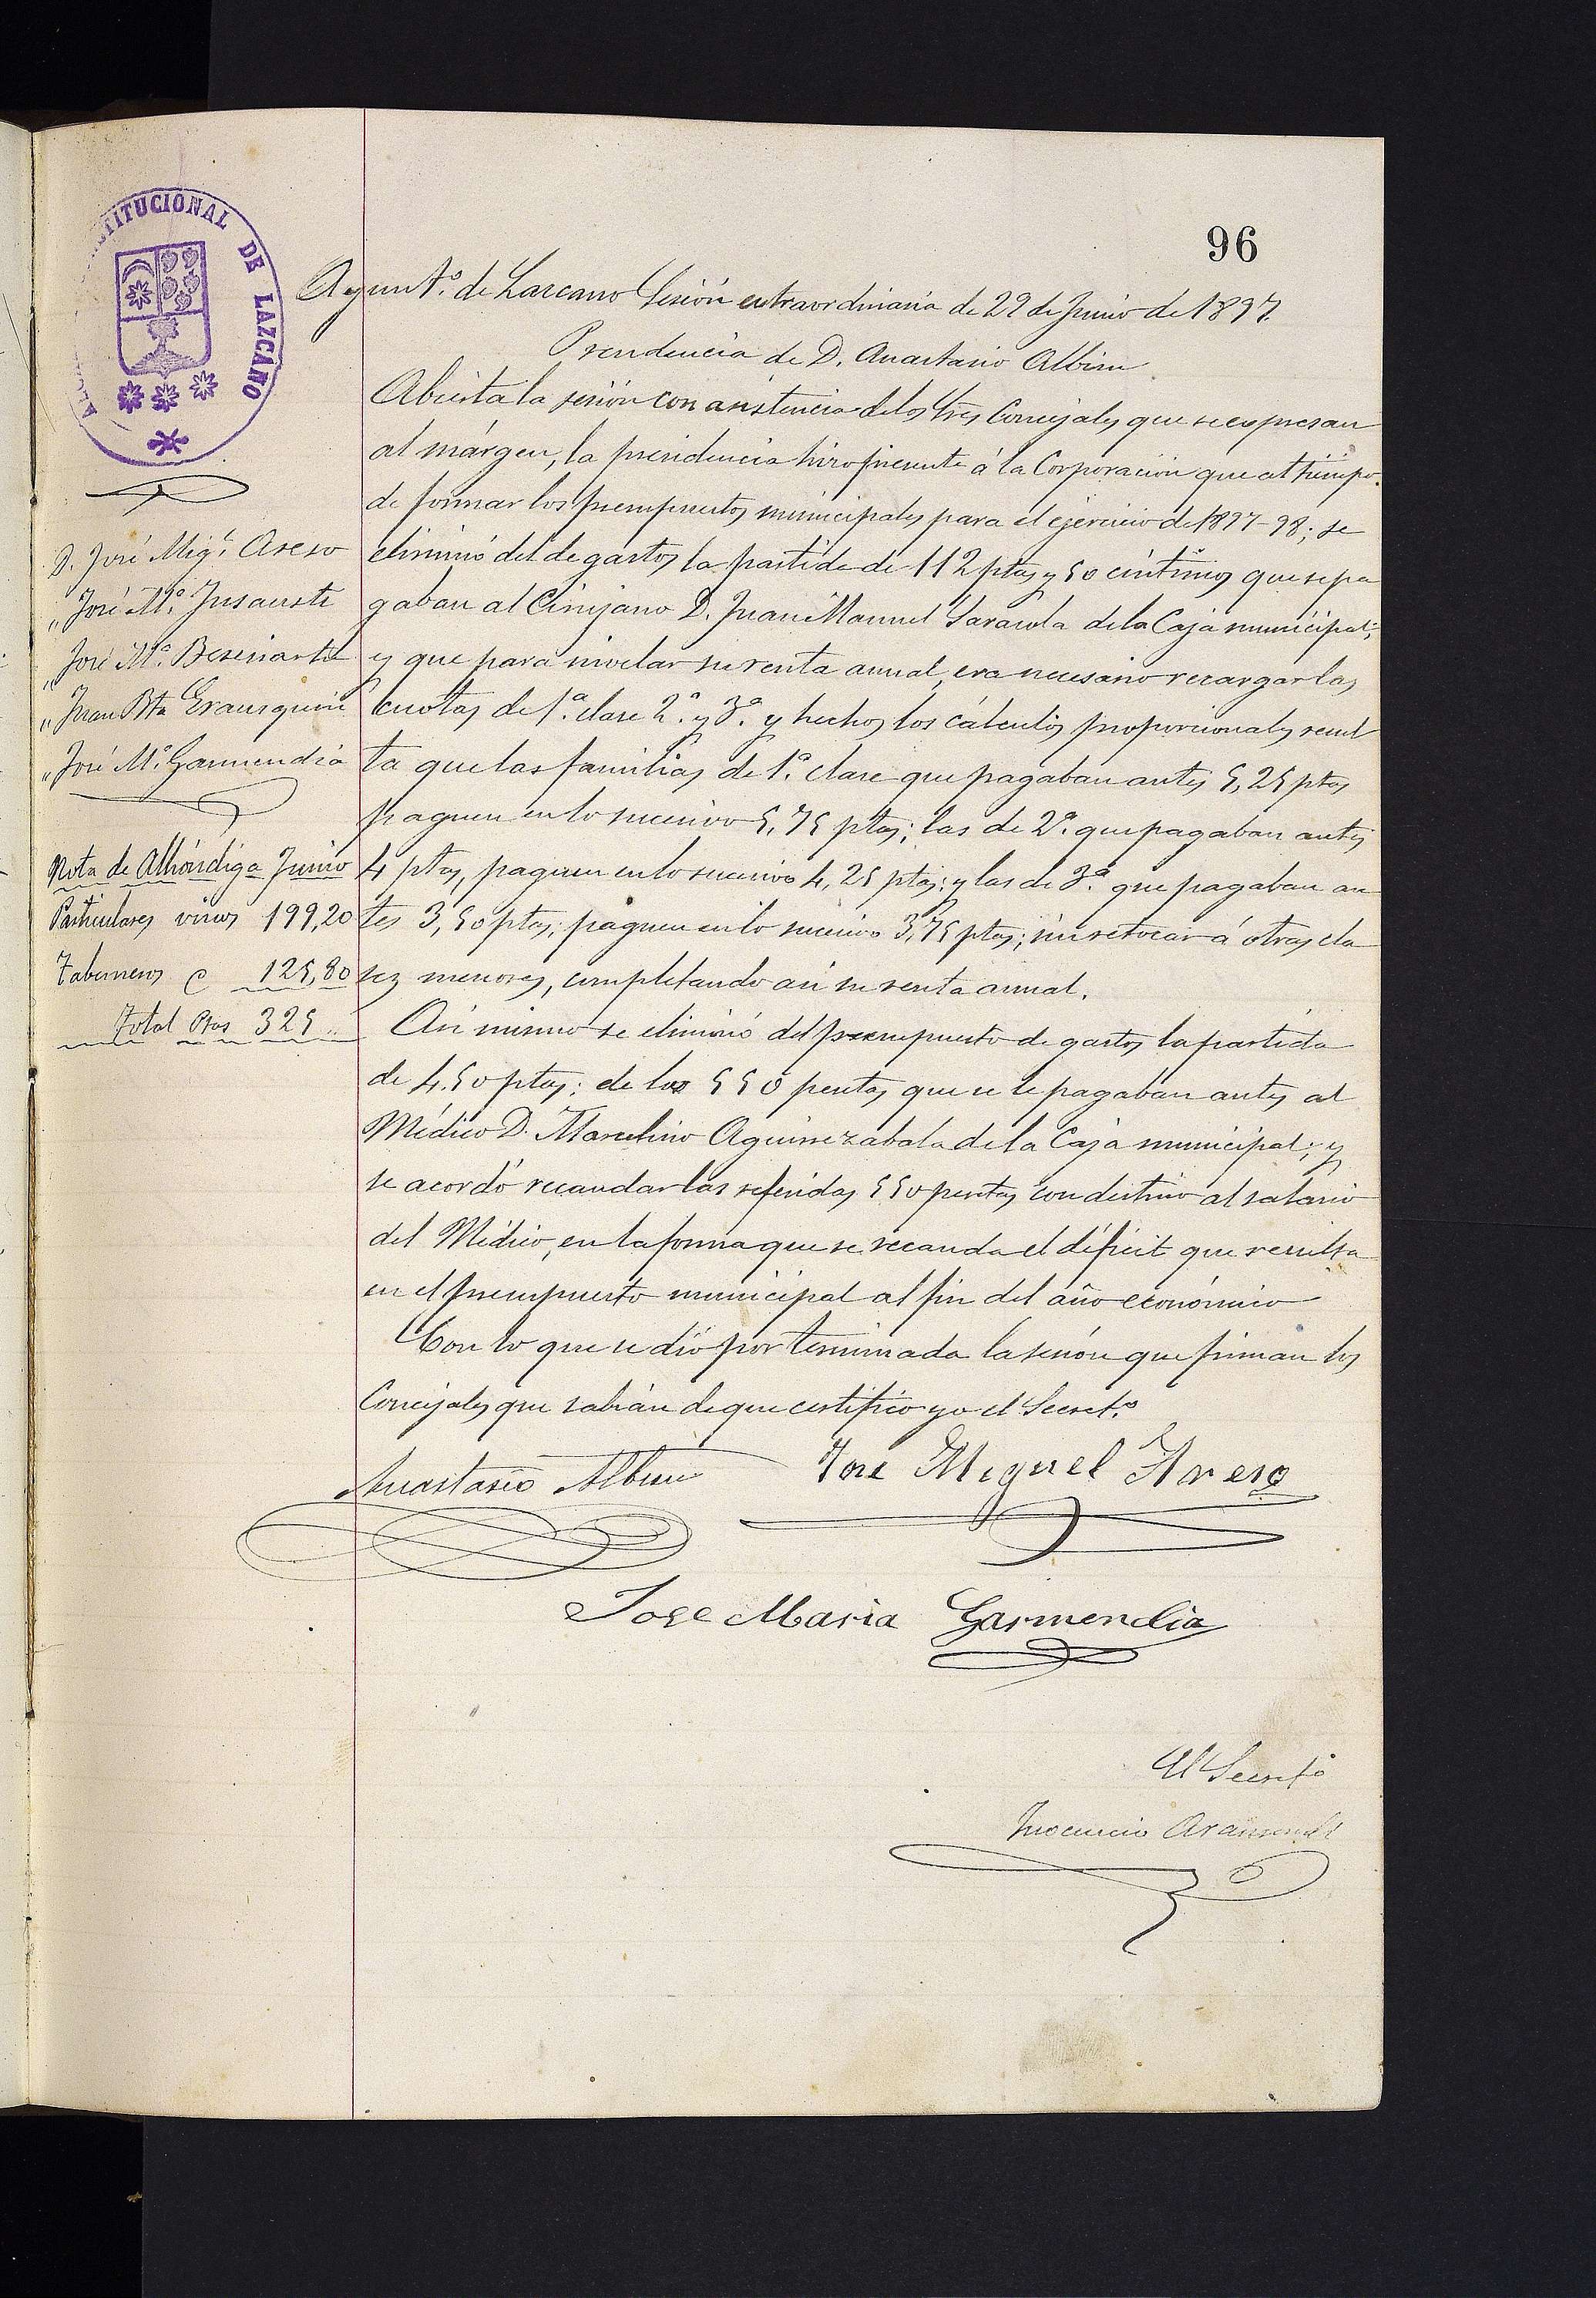 96
TITUCIONAL DE LAZCANO
Ayunt.º de Lazcano Sesión extraordinaria de 29 de Junio de 1897.
Presidencia de D. Anastasio Albisu
Abierta la sesión con asistencia de los Sres Concejales que se expresan
al márgen, la presidencia hizo presente á la Corporación que al tiempo
de formar los presupuestos municipales para el ejercicio de 1897-98; se
eliminó del de gastos la partida de 112 ptas y 50 céntimos que se pa
gaban al Cirujano D. Juan Manuel Sarasola de la Caja municipal;
y que para nivelar su renta annal, era necesario recargar las
cuotas de 1.ª clase 2.ª y 3.ª y hechos los cálculos proporcionales resul
ta que las familias de 1.ª clase que pagaban antes 5,25 ptas
paguen en lo sucesivo 5,75 ptas; las de 2.ª que pagaban antes
4 ptas, paguen en lo sucesivo 4,25 ptas; y las de 3.ª que pagaban an
tes 3,50 ptas; paguen en lo sucesivo 3,75 ptas; sin retocar á otras cla
ses menores, completando así su renta annal.
Asi mismo se eliminó del presupuesto de gastos la partida
de 450 ptas: de las 550 pesetas que se le pagaban antes al
Médico D. Marcelino Aguirrezabala de la Caja municipal; y
se acordó recaudar las referidas 550 pesetas con destino al salario
del Médico, en la forma que se recauda el déficit que resulta
en el presupuesto municipal al fin del año económico
Con lo que se dió por terminada la sesión que firman los
Concejales que sabían de que certifico yo el Secret.º
D. José Mig.l Areso
" José M.ª Insausti
" José M.ª Beseiartu
" Juan Bta Erausquin
" José M.ª Garmendia
Nota de Alhóndiga Junio
Particulares vinos 199,20
Taberneros C 125,80
Total Ptas 325 "
Anastasio Albisu
José Miguel Areso
Jose Maria Garmendia
El Secret.º
Inocencio